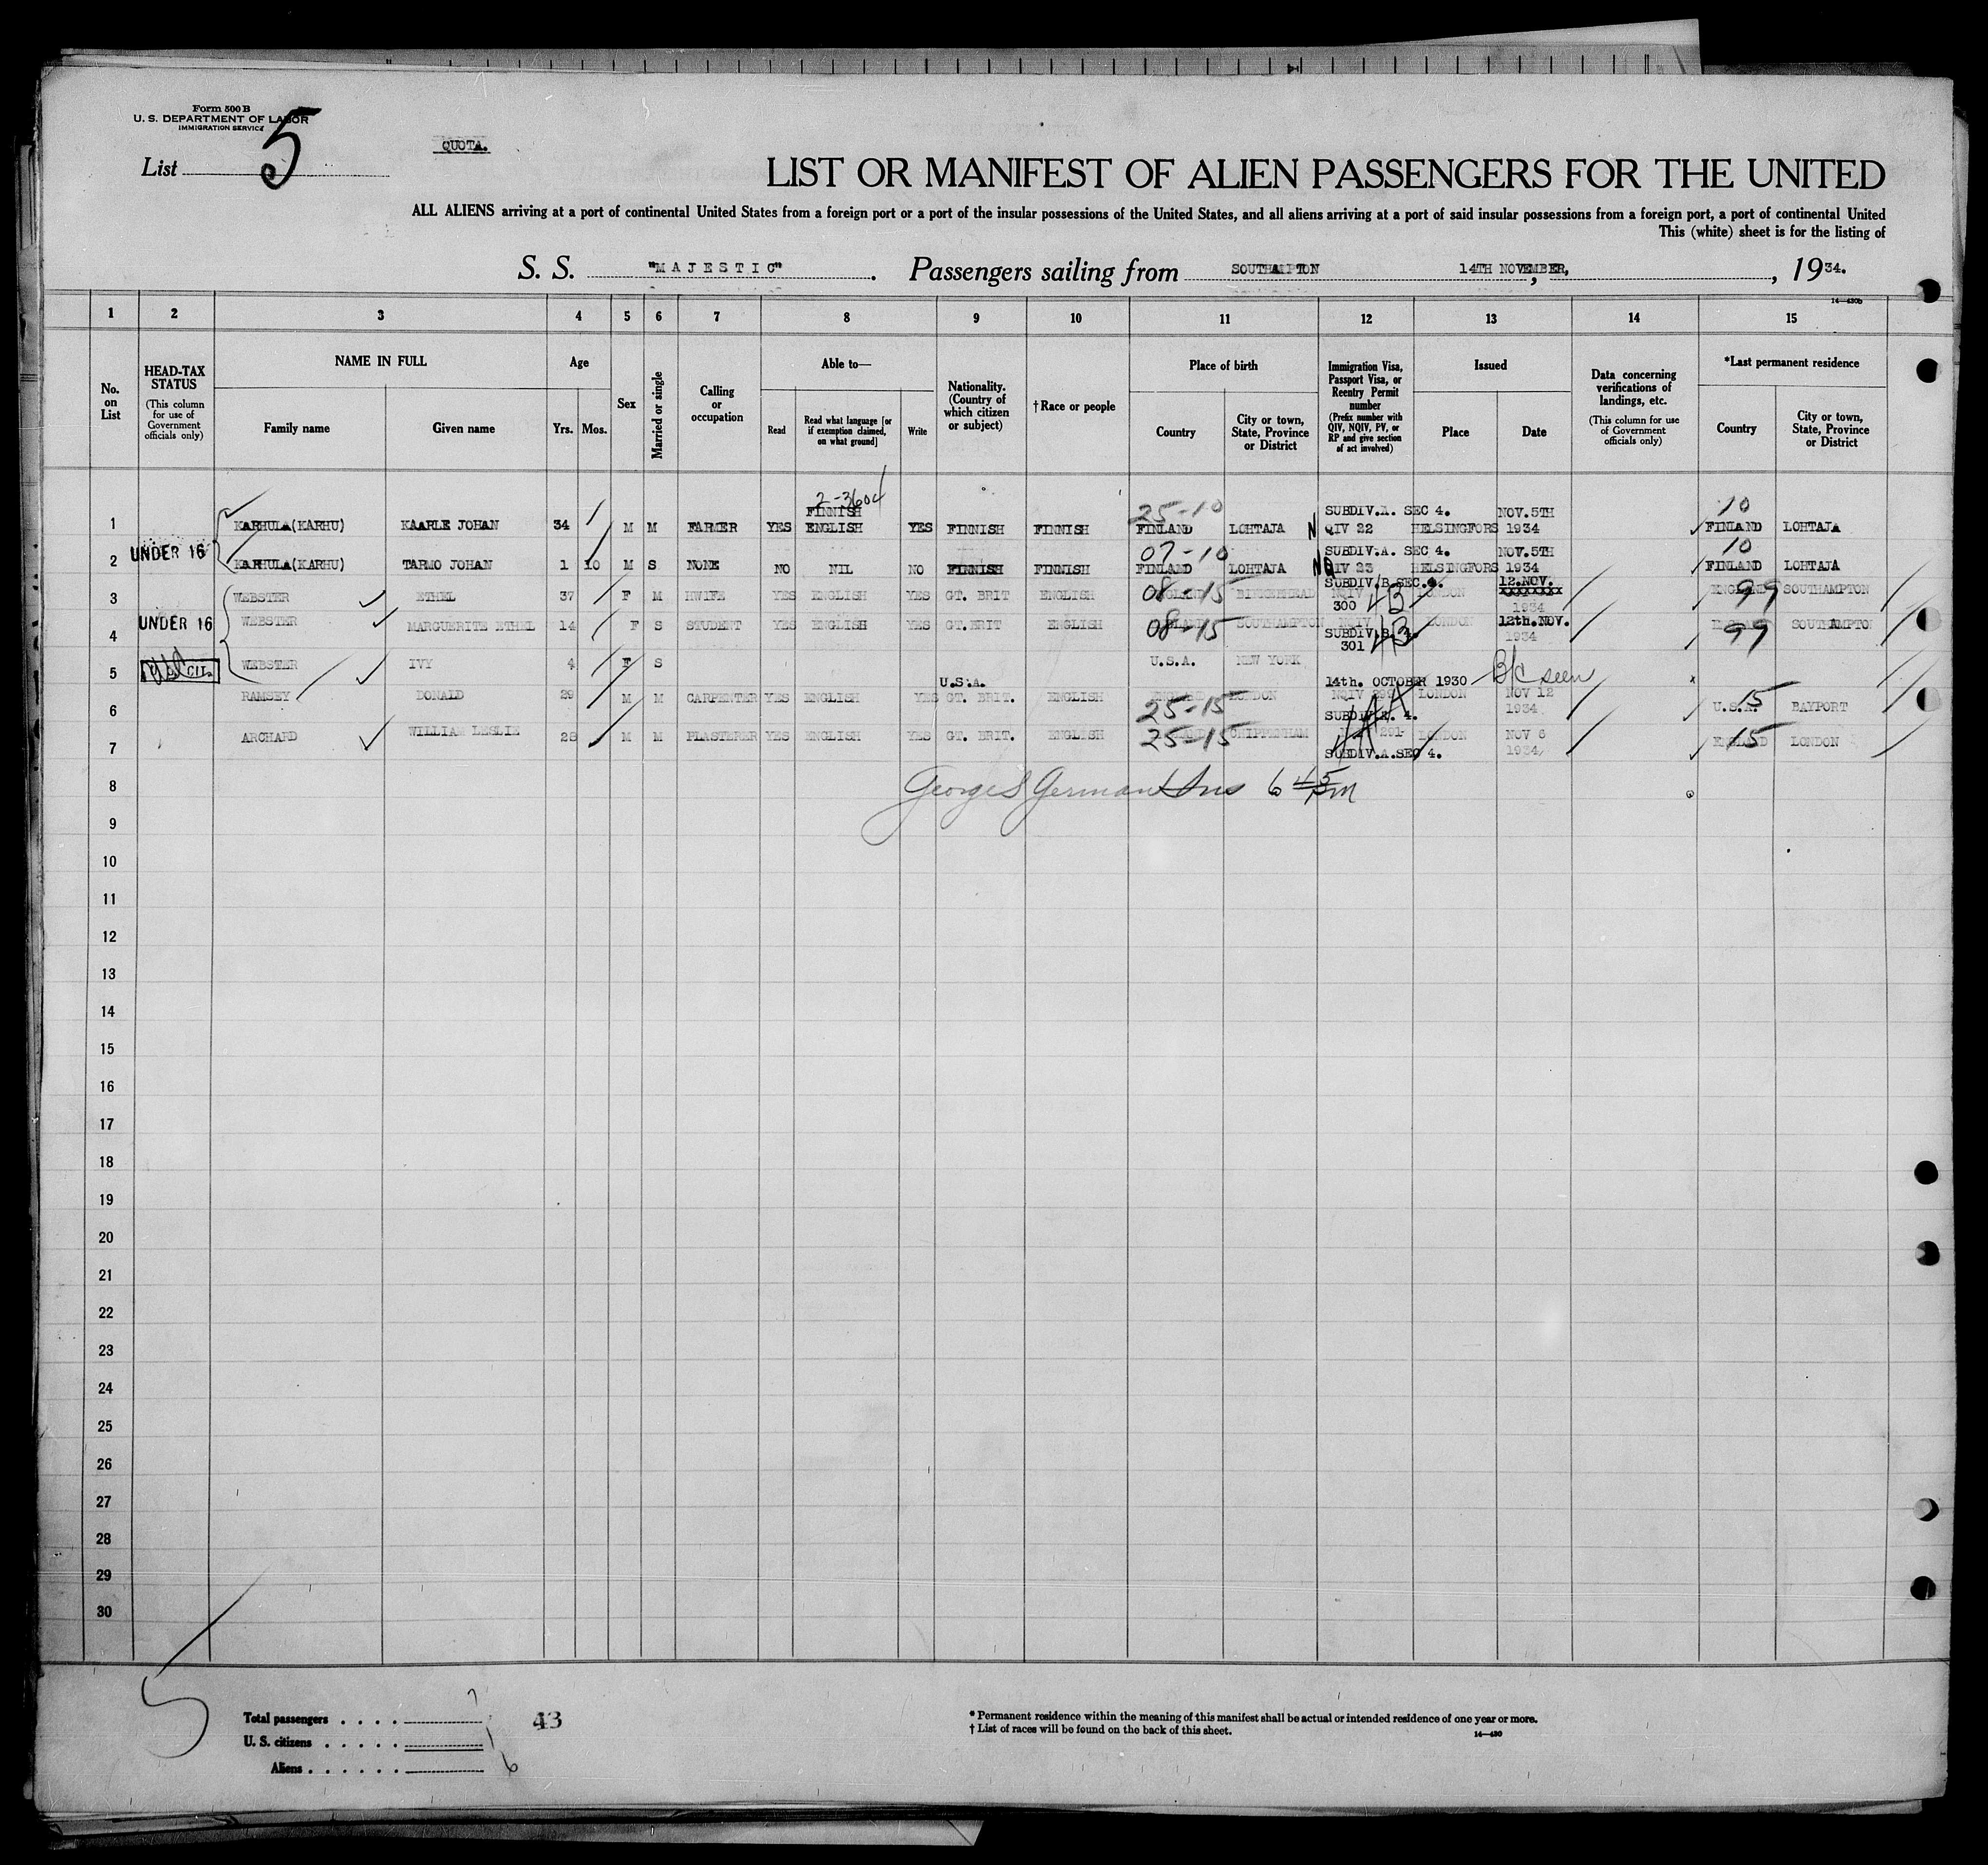 Form 500 B
U. S. DEPARTMENT OF LABOR
IMMIGRATION SERVICE
List 5
QUOTA.
LIST OR MANIFEST OF ALIEN PASSENGERS FOR THE UNITED
ALL ALIENS arriving at a port of continental United States from a foreign port or a port of the insular possessions of the United States, and all aliens arriving at a port of said insular possessions from a foreign port, a port of continental United
This (white) sheet is for the listing of
S. S. "MAJESTIC". Passengers sailing from SOUTHAMPTON 14TH NOVEMBER, , 1934.
14—430b
1 2 3 4 5 6 7 8 9 10 11 12 13 14 15
No. on List
HEAD-TAX STATUS (This column for use of Government officials only)
NAME IN FULL
Family name Given name
Age
Yrs. Mos.
Sex
Married or single
Calling or occupation
Able to—
Read Read what language [or if exemption claimed, on what ground] Write
Nationality. (Country of which citizen or subject)
†Race or people
Place of birth
Country City or town, State, Province or District
Immigration Visa, Passport Visa, or Reentry Permit number (Prefix number with QIV, NQIV, PV, or RP and give section of act involved)
Issued
Place Date
Data concerning verifications of landings, etc. (This column for use of Government officials only)
*Last permanent residence
Country City or town, State, Province or District
2-3604
FINNISH 25-10 SUBDIV.A. SEC 4. NOV.5TH 10
1 KARHULA(KARHU) KAARLE JOHAN 34 M M FARMER YES ENGLISH YES FINNISH FINNISH FINLAND LOHTAJA N QIV 22 HELSINGFORS 1934 FINLAND LOHTAJA
UNDER 16 07-10 SUBDIV.A. SEC 4. NOV.5TH 10
2 KARHULA(KARHU) TARMO JOHAN 1 10 M S NONE NO NIL NO FINNISH FINNISH FINLAND LOHTAJA NQIV 23 HELSINGFORS 1934 FINLAND LOHTAJA
SUBDIV.B.SEC.4. 12.NOV.
3 WEBSTER ETHEL 37 F M HWIFE YES ENGLISH YES GT. BRIT ENGLISH 08-15 BIRKENHEAD NQIV 300 4B LONDON 1934 ENGLAND 99 SOUTHAMPTON
UNDER 16
4 WEBSTER MARGUERITE ETHEL 14 F S STUDENT YES ENGLISH YES GT.BRIT ENGLISH 08-15 SOUTHAMPTON NQIV SUBDIV.B.4. 301 4B LONDON 12th.NOV. 1934 99 SOUTHAMPTON
5 USC CIT. WEBSTER IVY 4 F S U.S.A. U.S.A. NEW YORK 14th. OCTOBER 1930 B/C seen
6 RAMSEY DONALD 29 M M CARPENTER YES ENGLISH YES GT. BRIT. ENGLISH 25-15 LONDON NQIV SUBDIV.A. 4. 4A LONDON NOV 12 1934 U.S.A. 15 BAYPORT
7 ARCHARD WILLIAM LESLIE 28 M M PLASTERER YES ENGLISH YES GT. BRIT. ENGLISH 25-15 CHIPPENHAM 291 SUBDIV.A.SEC 4. 4A LONDON NOV 6 1934 ENGLAND 15 LONDON
8 George S German Ins 6 45 pm
9
10
11
12
13
14
15
16
17
18
19
20
21
22
23
24
25
26
27
28
29
30
5
Total passengers . . . . 7
U. S. citizens . . . . . 1
Aliens . . . . . . 6
43
* Permanent residence within the meaning of this manifest shall be actual or intended residence of one year or more.
† List of races will be found on the back of this sheet.
14—430